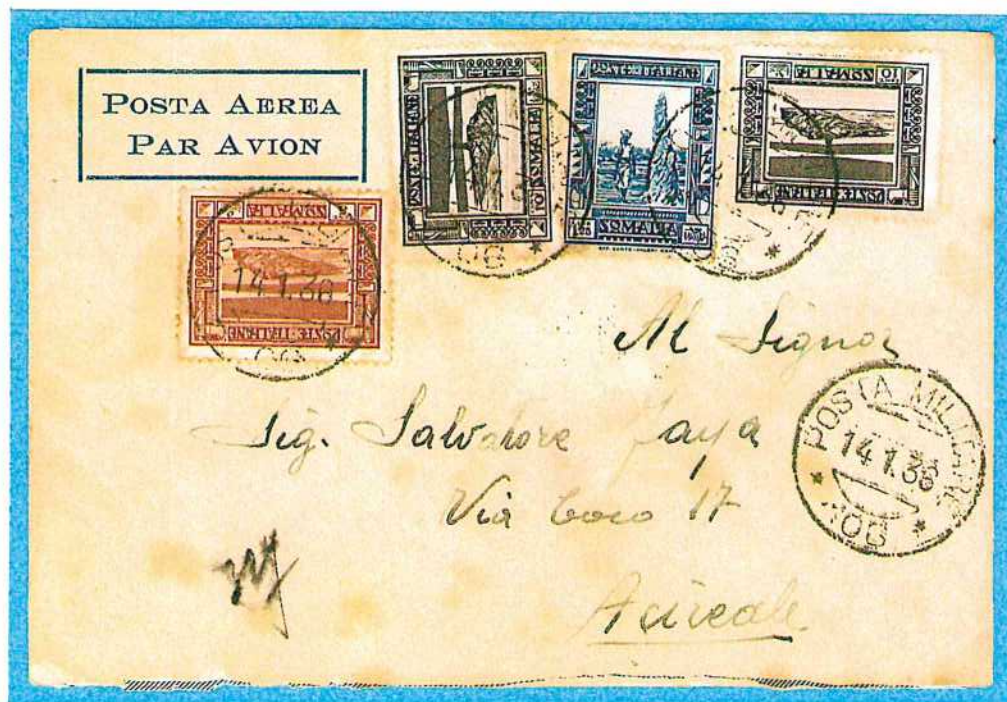 POSTA AEREA
PAR AVION
POSTE·ITALIANE
SOMALIA
10
POSTE·ITALIANE
SOMALIA
1,25
SOMALIA
10
POSTE·ITALIANE
SOMALIA
POSTE·ITALIANE
14.1.36
Al Signor
Sig. Salvatore
Via Coco 17
Acireale
POSTA MILITARE
14.1.36